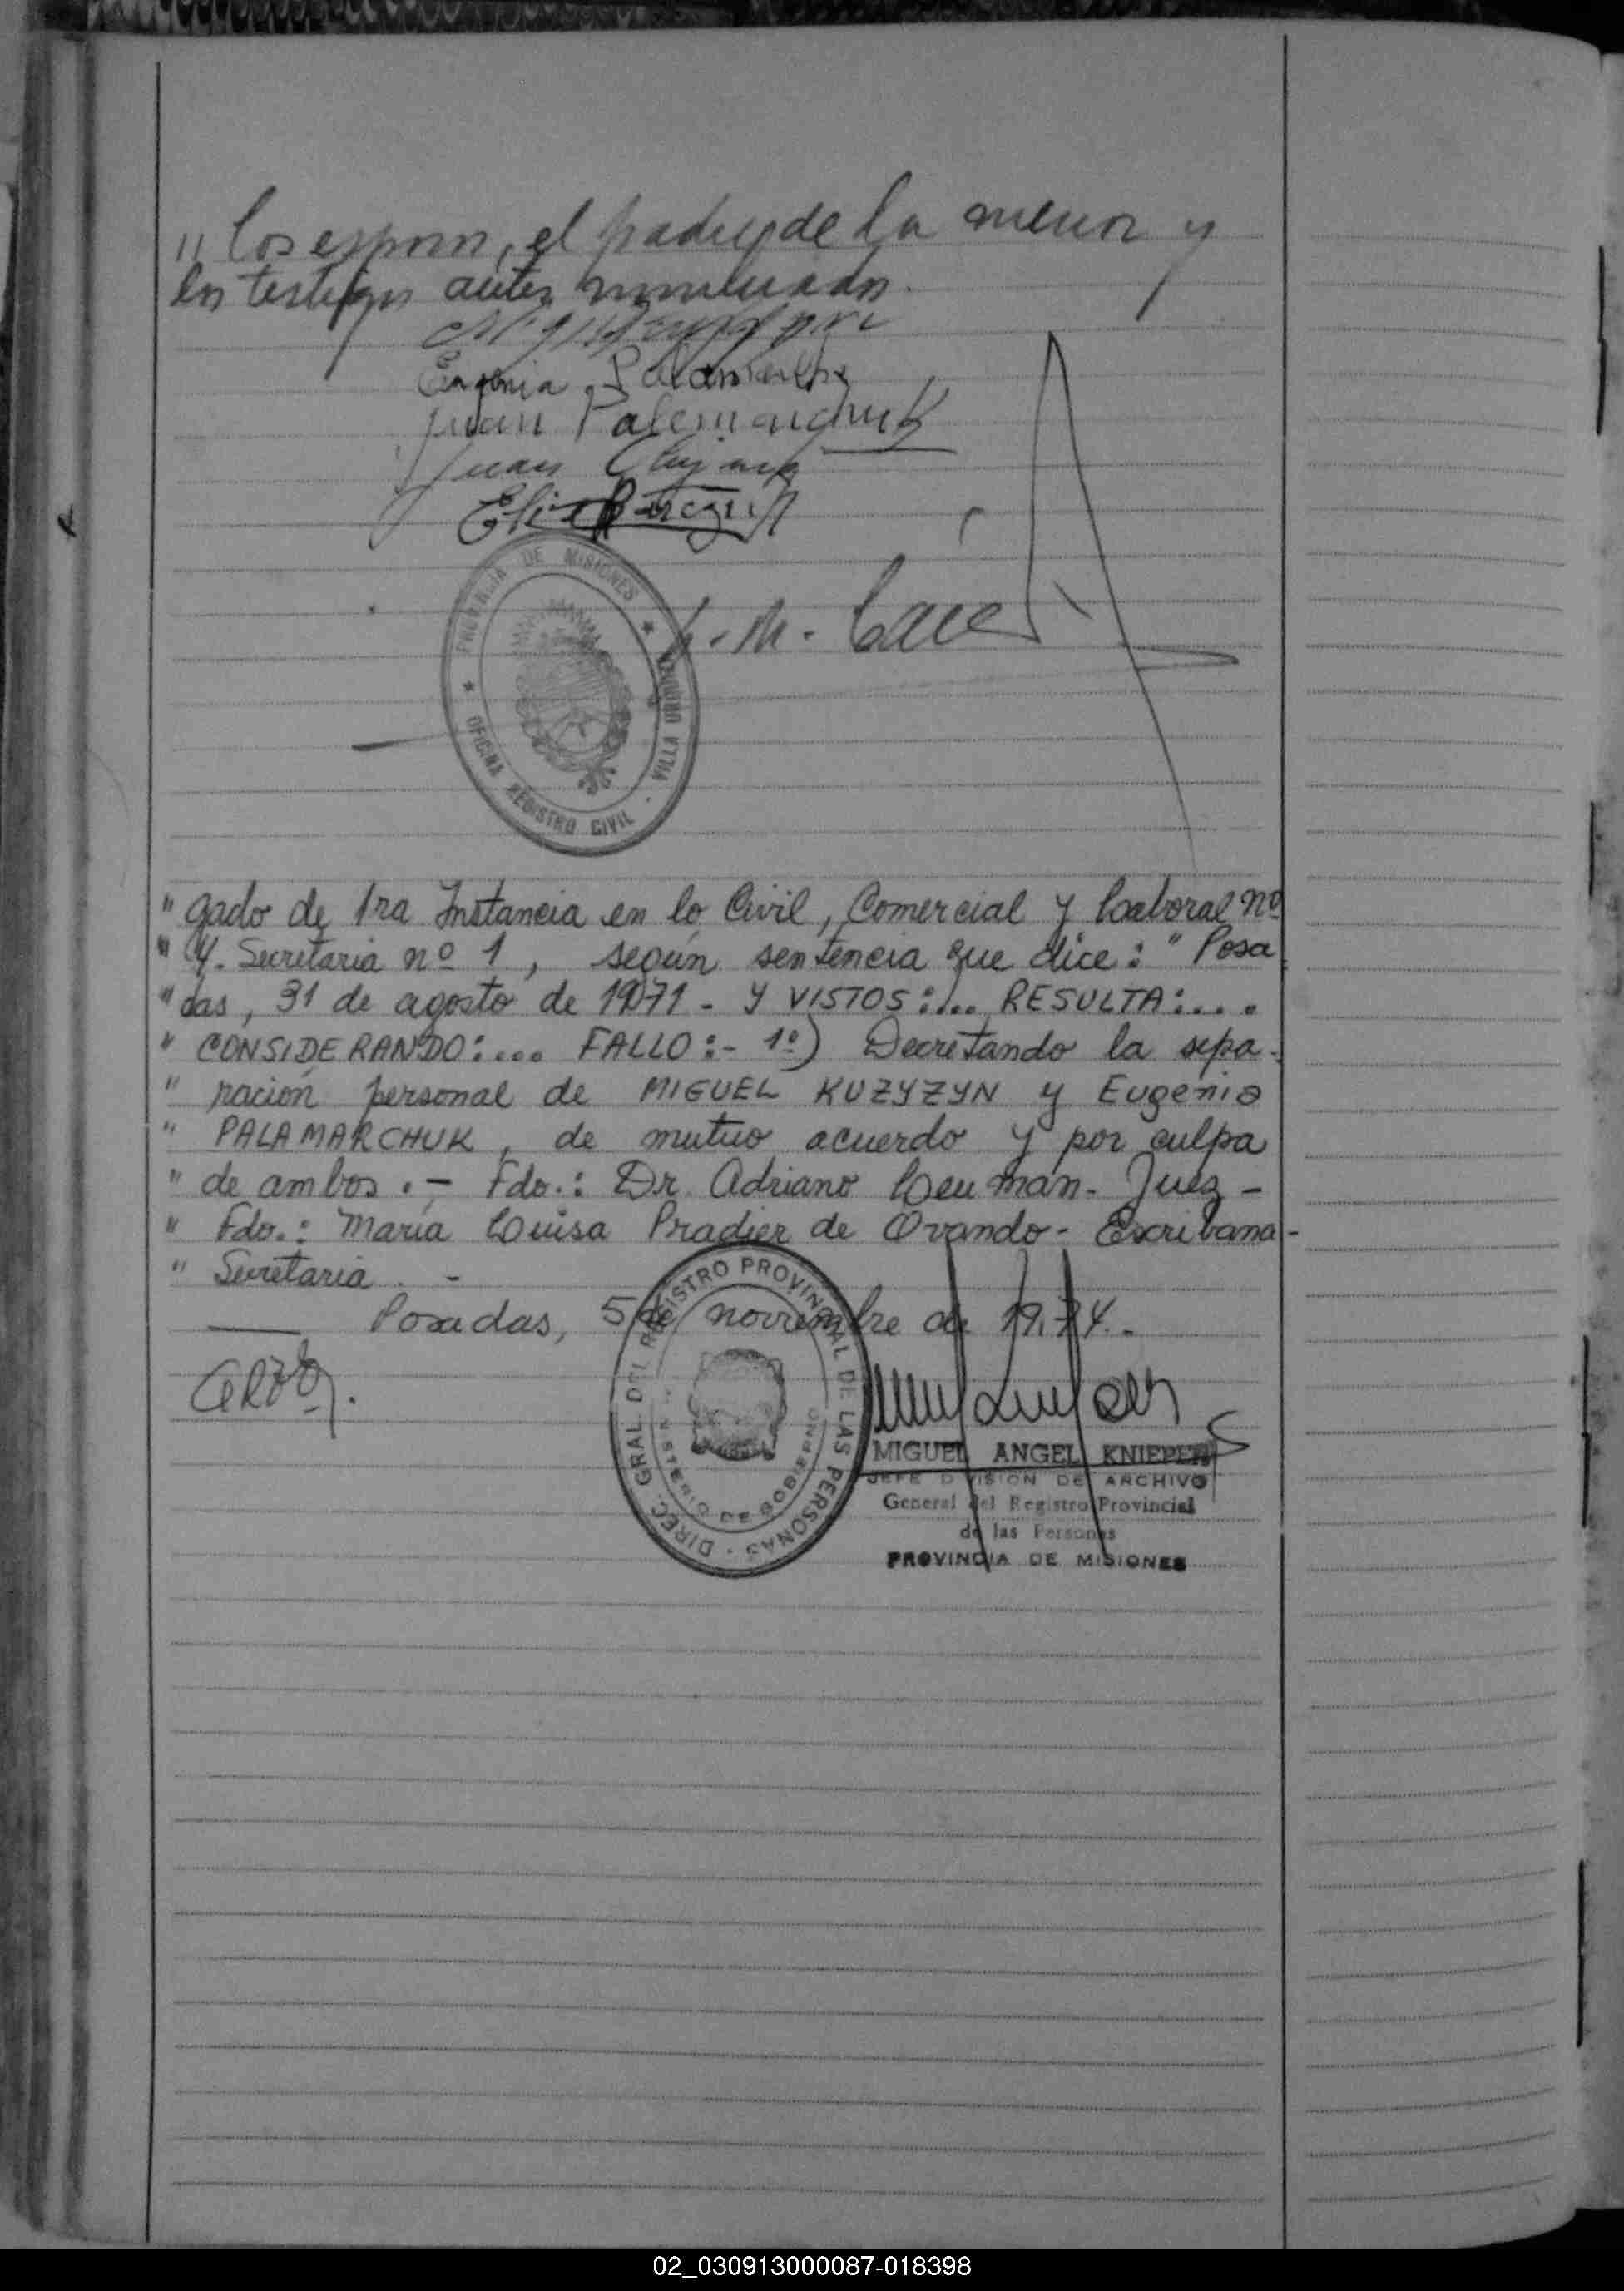 " los esposos, el padre de la menor y
los testigos antes nombrados.
Eugenia Palamarchuk
Juan Palamarchuk
Juan
PROVINCIA DE MISIONES
OFICINA REGISTRO CIVIL - VILLA
" gado de 1ra Instancia en lo Civil, Comercial y Laboral nº
" 4. Secretaria nº 1, según sentencia que dice: " Posa
" das, 31 de agosto de 1971 - Y VISTOS:... RESULTA:....
" CONSIDERANDO:... FALLO:- 1º) Decretando la sepa-
" ración personal de MIGUEL KUZYZYN y Eugenia
" PALAMARCHUK, de mutuo acuerdo y por culpa
" de ambos.- Fdo.: Dr. Adriano Leuman - Juez -
" Fdo.: María Luisa Pradier de Ovando - Escribana -
" Secretaria. -
Posadas, 5 de noviembre de 1974.-
DIREC. GRAL. DEL REGISTRO PROVINCIAL DE LAS PERSONAS -
MINISTERIO DE GOBIERNO
MIGUEL ANGEL
JEFE DIVISION DE ARCHIVO
General del Registro Provincial
de las Personas
PROVINCIA DE MISIONES
02_030913000087-018398